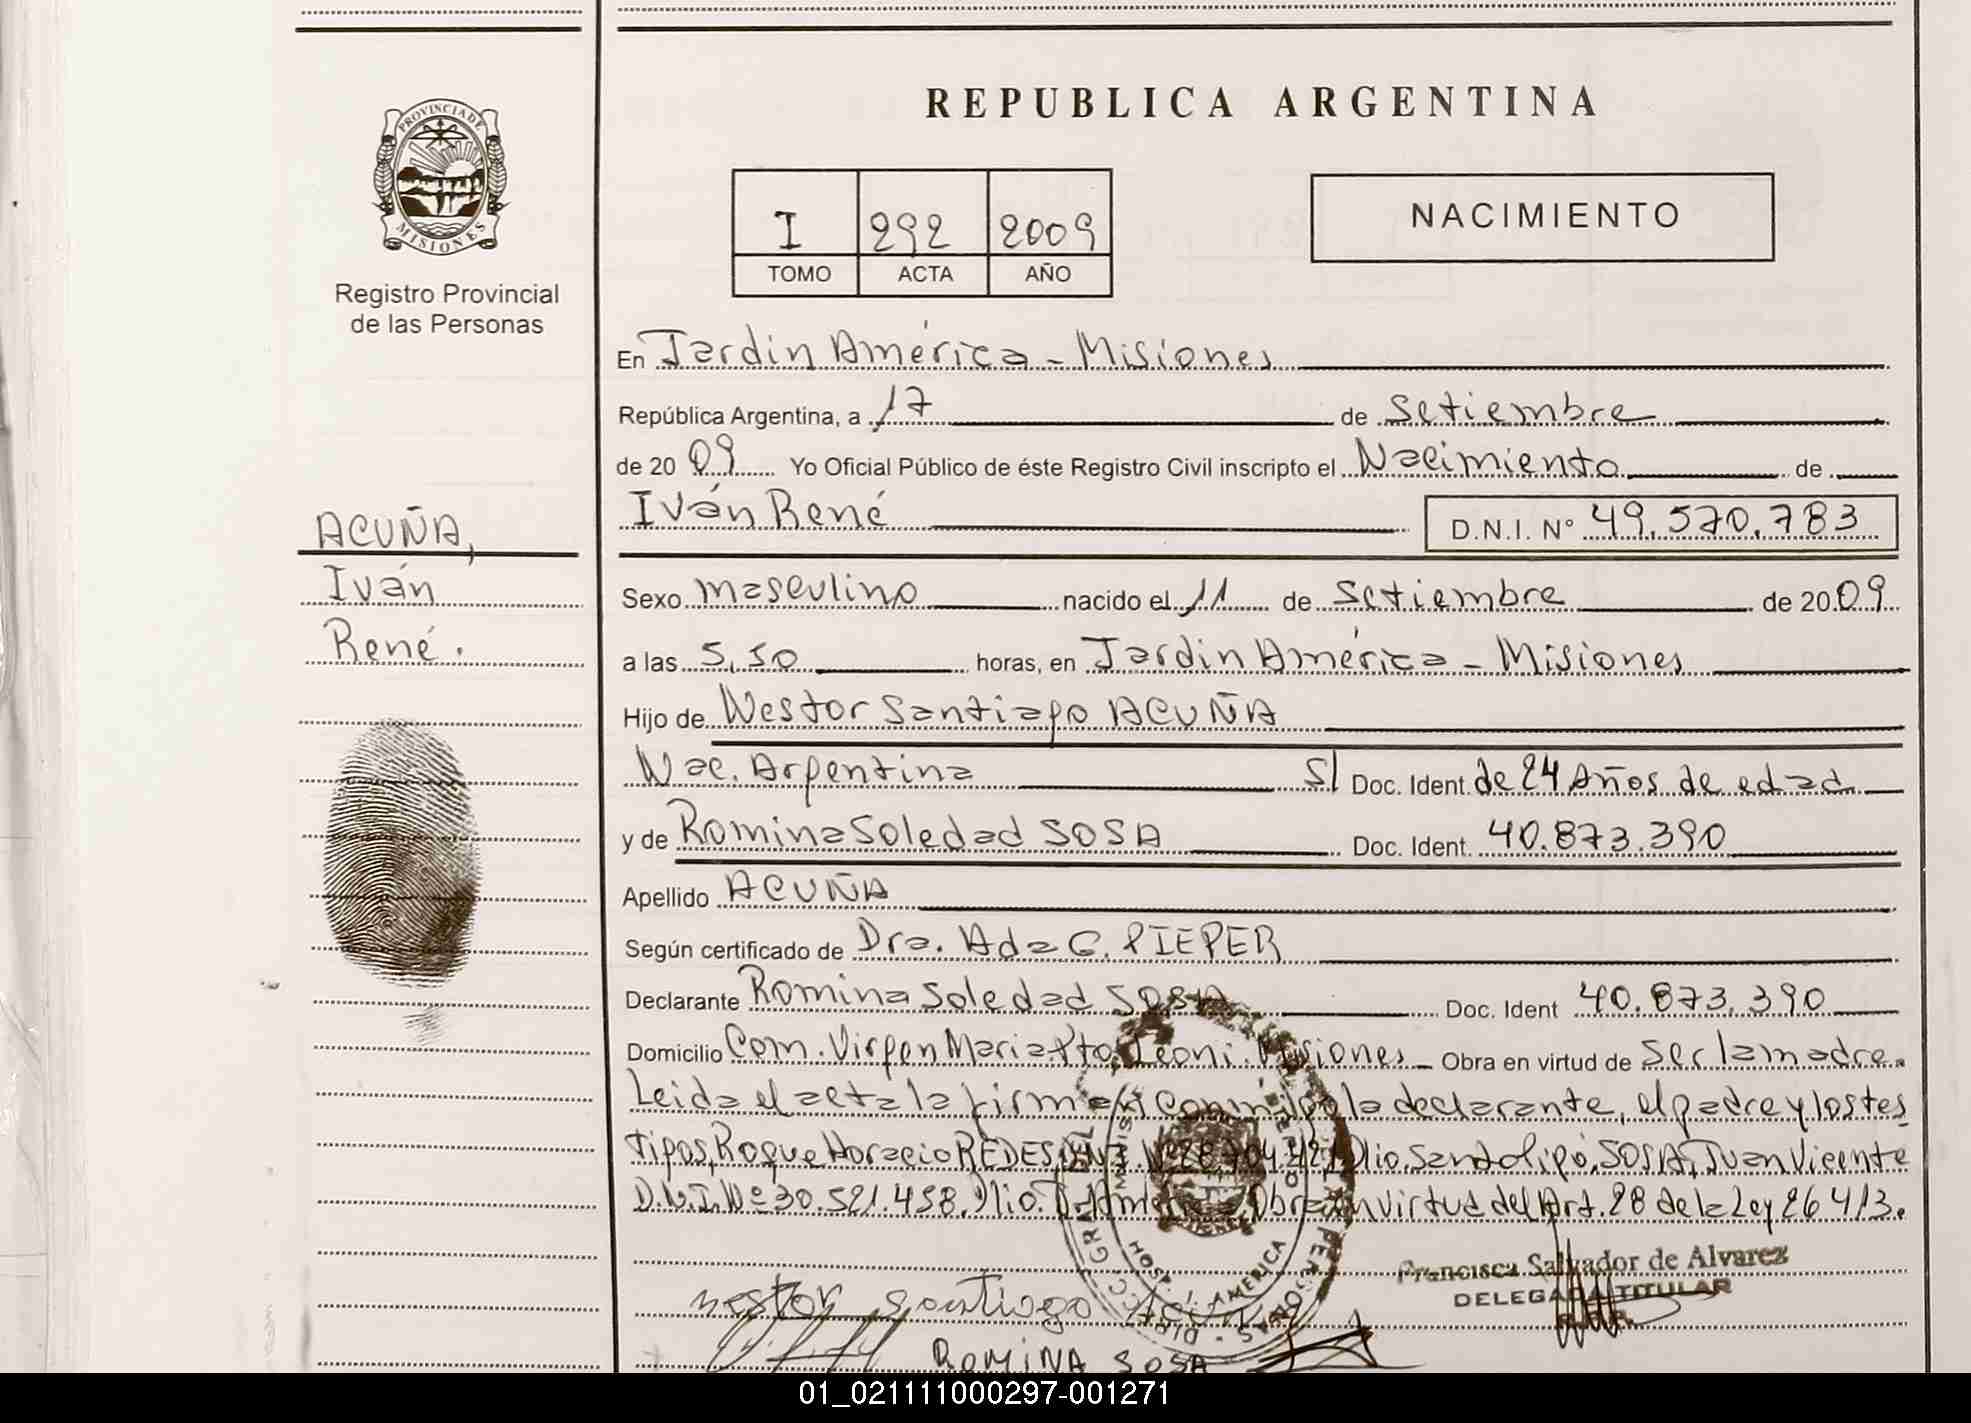 PROVINCIA DE
MISIONES
Registro Provincial
de las Personas
ACUÑA,
Iván
René.
REPUBLICA ARGENTINA
I 292 2009
TOMO ACTA AÑO
NACIMIENTO
En Jardin América - Misiones
República Argentina, a 17 de Setiembre
de 2009 Yo Oficial Público de éste Registro Civil inscripto el Nacimiento de
Iván René D.N.I. N° 49.570.783
Sexo masculino nacido el 11 de Setiembre de 2009
a las 5,50 horas, en Jardin América - Misiones
Hijo de Nestor Santiago ACUÑA
Nac. Argentina S/ Doc. Ident. de 24 Años de edad
y de Romina Soledad SOSA Doc. Ident. 40.873.390
Apellido ACUÑA
Según certificado de Dra. Ada G. PIEPER
Declarante Romina Soledad SOSA Doc. Ident 40.873.390
Domicilio Com. Virgen Maria Pto. Leoni. Misiones Obra en virtud de ser la madre.
Leida el acta la firma conmigo la declarante, el padre y los tes
tigos, Roque Horacio REDES, DNI. Nº 28.704.421 Dlio. Santo Pipó. SOSA, Juan Vicente
D.N.I. Nº 30.521.458. Dlio. J. América. Obra en virtud del Art. 28 de la Ley 26413.
Francisca Salvador de Alvarez
DELEGADA TITULAR
nestor santiago
ROMINA SOSA
HOSP. J. AMERICA
01_021111000297-001271